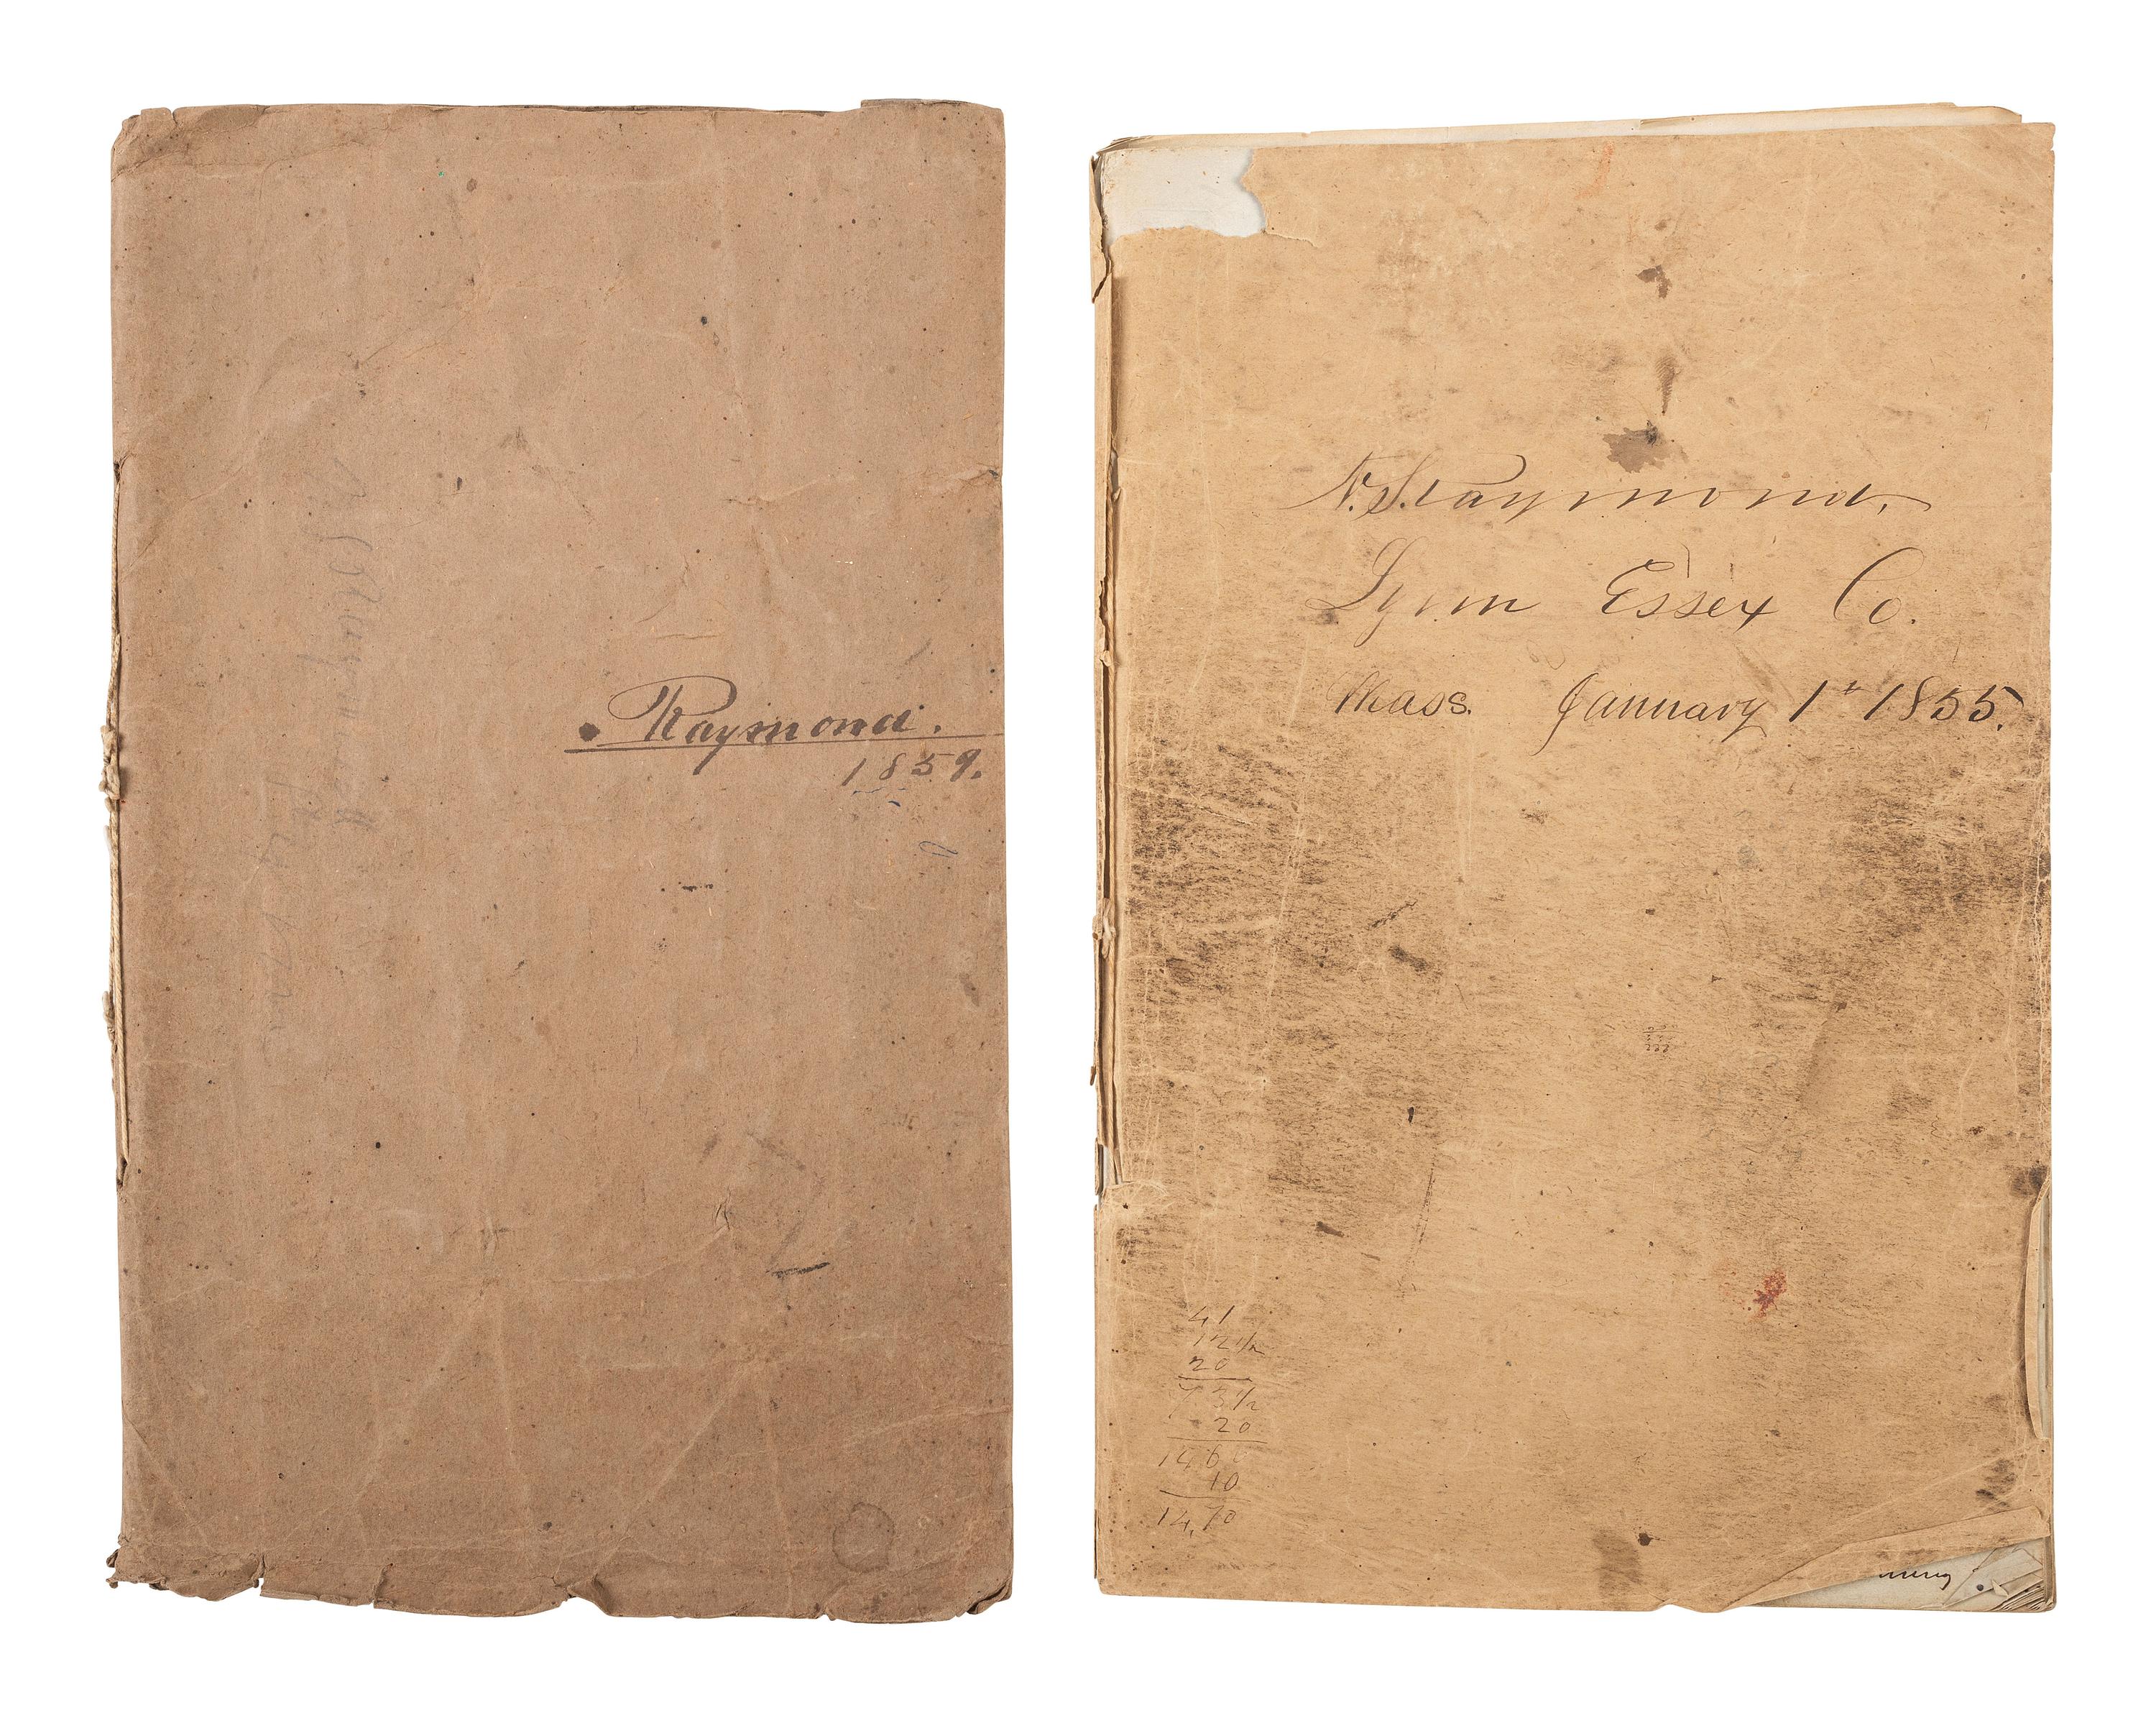 Raymond.
1859.
N.S. Raymond.
Lynn Essex Co.
Mass. January 1st 1855.
41
12 1/2
20
73 1/2
20
1466
10
14.70